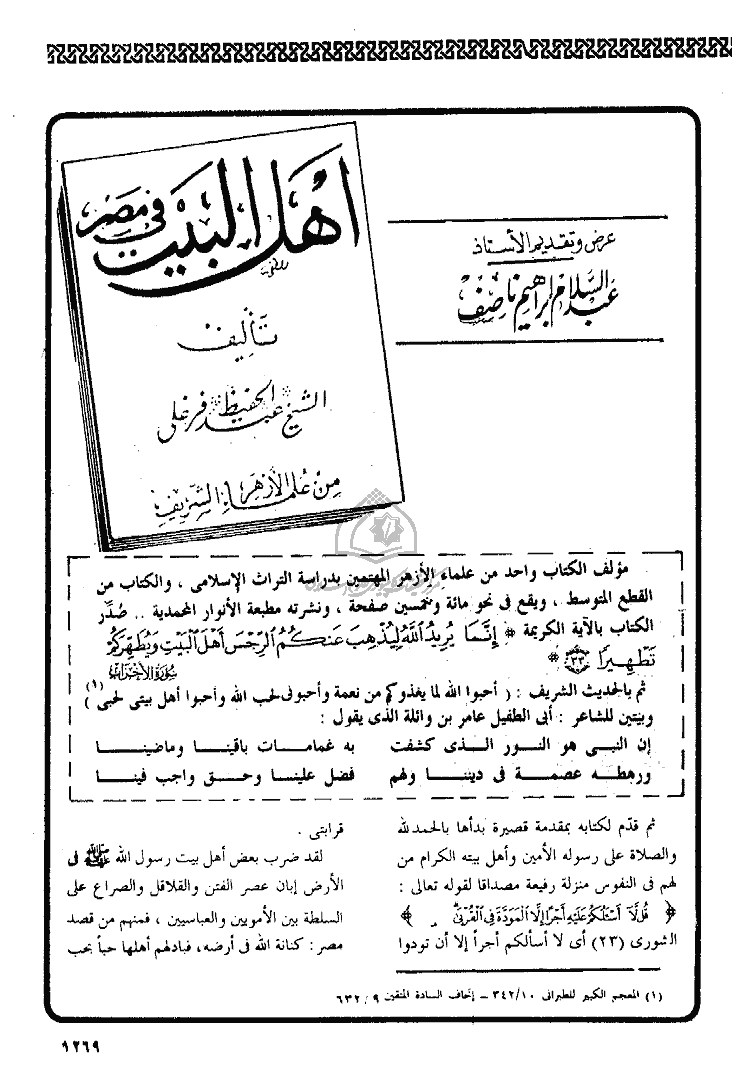 أهل البيت في مصر
تأليف
الشيخ عبد الحفيظ فرغلى
من علماء الأزهر الشريف
عرض وتقديم الأستاذ
عبد السلام ابراهيم ناصف
مؤلف الكتاب واحد من علماء الأزهر المهتمين بدراسة التراث الإسلامى ، والكتاب من
القطع المتوسط ، ويقع فى نحو مائة وخمسين صفحة ، ونشرته مطبعة الأنوار المحمدية .. صُدِّر
الكتاب بالآية الكريمة ﴿ إِنَّمَا يُرِيدُ اللَّهُ لِيُذْهِبَ عَنكُمُ الرِّجْسَ أَهْلَ الْبَيْتِ وَيُطَهِّرَكُمْ
تَطْهِيرًا ٣٣ ﴾ سُورَةُ الأَحْزَاب
ثم بالحديث الشريف : ( أحبوا الله لما يغذوكم من نعمة وأحبونى لحب الله وأحبوا أهل بيتى لحبى (١) )
وببيتين للشاعر : أبى الطفيل عامر بن واثلة الذى يقول :
إن النبى هو النور الذى كشفت به غمامات باقينا وماضينا
ورهطه عصمة فى ديننا ولهم فضل علينا وحق واجب فينا
ثم قدّم لكتابه بمقدمة قصيرة بدأها بالحمد لله
والصلاة على رسوله الأمين وأهل بيته الكرام من
لهم فى النفوس منزلة رفيعة مصداقا لقوله تعالى :
﴿ قُل لَّا أَسْئَلُكُمْ عَلَيْهِ أَجْرًا إِلَّا الْمَوَدَّةَ فِى الْقُرْبَىٰ ﴾
الشورى (٢٣) أى لا أسألكم أجراً إلا أن تودوا
قرابتى .
لقد ضرب بعض أهل بيت رسول الله ﷺ فى
الأرض إبان عصر الفتن والقلاقل والصراع على
السلطة بين الأمويين والعباسيين ، فمنهم من قصد
مصر : كنانة الله فى أرضه ، فبادلهم أهلها حباً بحب
(١) المعجم الكبير للطبرانى ٣٤٢/١٠ – إتحاف السادة المتقين ٩ / ٦٣٢
١٢٦٩